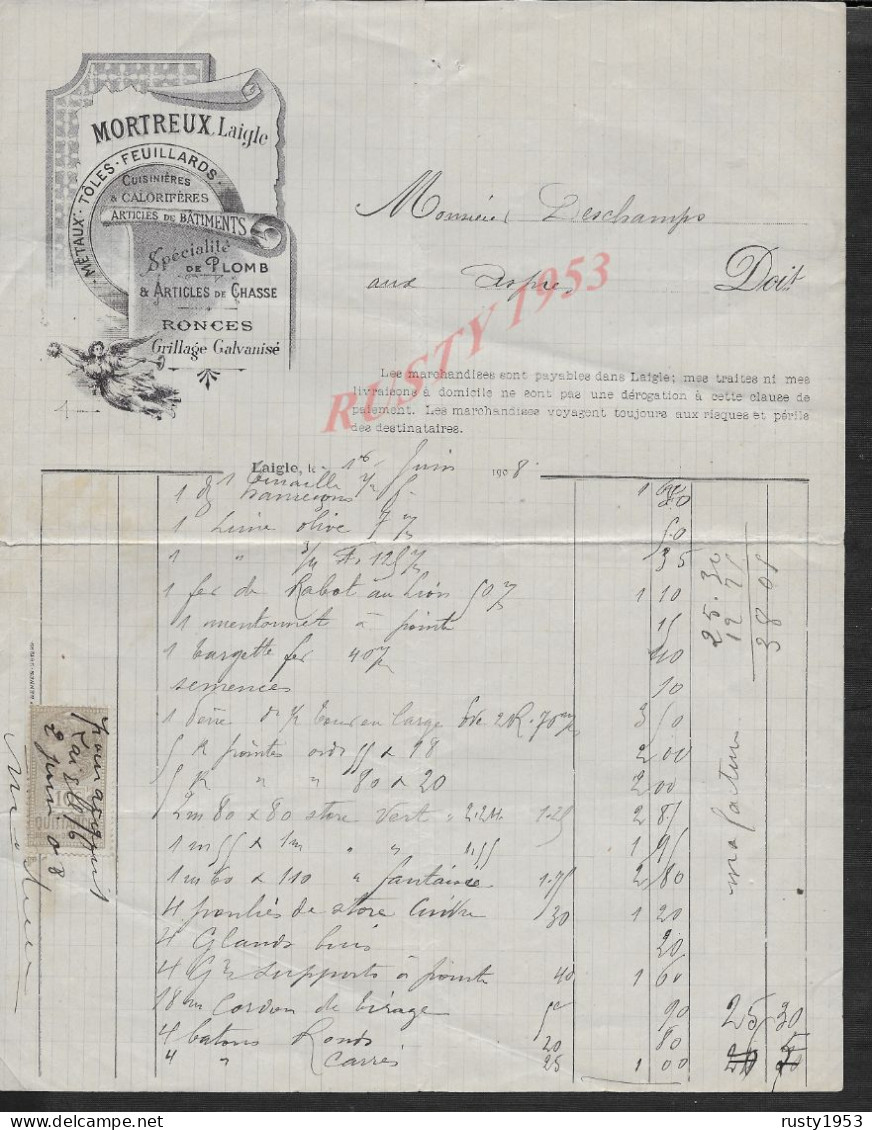 MORTREUX, Laigle
MÉTAUX · TÔLES · FEUILLARDS ·
CUISINIÈRES
& CALORIFÈRES
ARTICLES DE BÂTIMENTS
Spécialité
DE PLOMB
& ARTICLES DE CHASSE
RONCES
Grillage Galvanisé
Monsieur Deschamps
aux Aspres Doit
RUSTY 1953
Les marchandises sont payables dans Laigle; mes traites ni mes
livraisons à domicile ne sont pas une dérogation à cette clause de
paiement. Les marchandises voyagent toujours aux risques et périls
des destinataires.
Laigle, le Juin 1908
1
1 Lime olive 50
1 " 35
1 fer de Rabot au Lion 50 1 10
1 mentonnet à pointe 15
1 targette fer 40 40
semences 10
3 50
5 K pointes ord 55 x 18 2 00
5 K " " 80 x 20 2 00
2m80 x 80 store vert 1.25 2 85
1m55 x 1m " " 1 95
1m60 x 110 " fantaisie 1.75 2 80
4 poulies de store cuivre 30 1 20
4 Glands buis 20
4 Gds supports à pointe 40 1 60
18m Cordon de tirage 90
4 batons Ronds 20 80
4 " carrés 25 1 00
25 30
25.30
38 05
ma facture
pour acquit
Laigle
2 juin 08
Mortreux
rusty1953